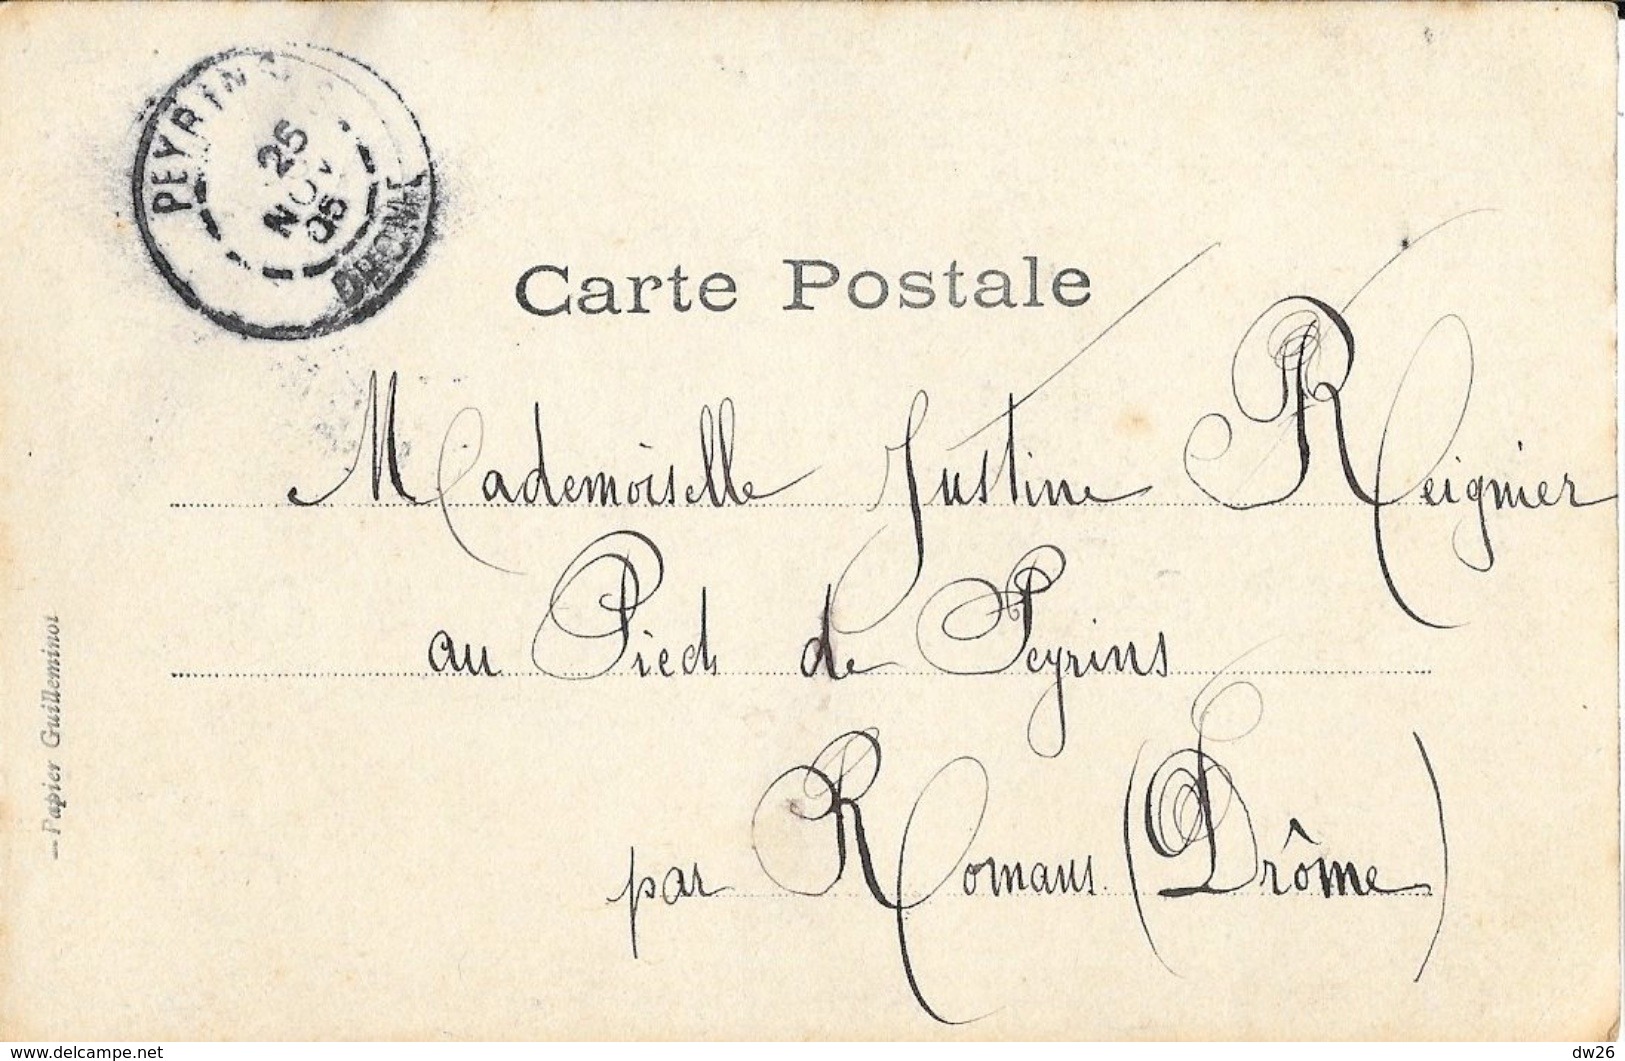 PEYRINS
25
NOV
05
DROME
Carte Postale
Mademoiselle Justine Reignier
au Pied de Peyrins
par Romans (Drôme)
— Papier Guilleminot
www.delcampe.net
dw26